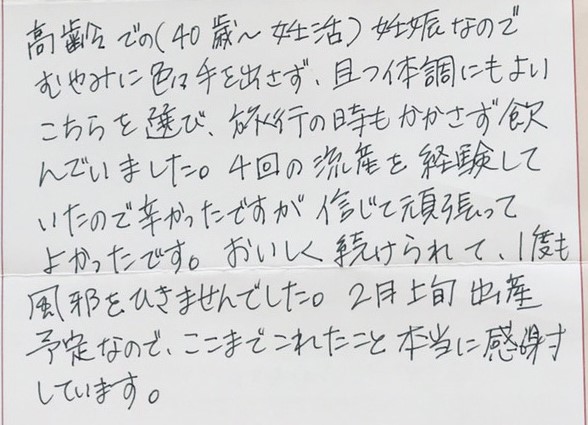 高齢での(40歳〜妊活)妊娠なので
むやみに色々手を出さず、且つ体調にもよい
こちらを選び、旅行の時もかかさず飲
んでいました。4回の流産を経験して
いたので辛かったですが信じて頑張って
よかったです。おいしく続けられて、1度も
風邪をひきませんでした。2月上旬出産
予定なので、ここまでこれたこと本当に感謝
しています。